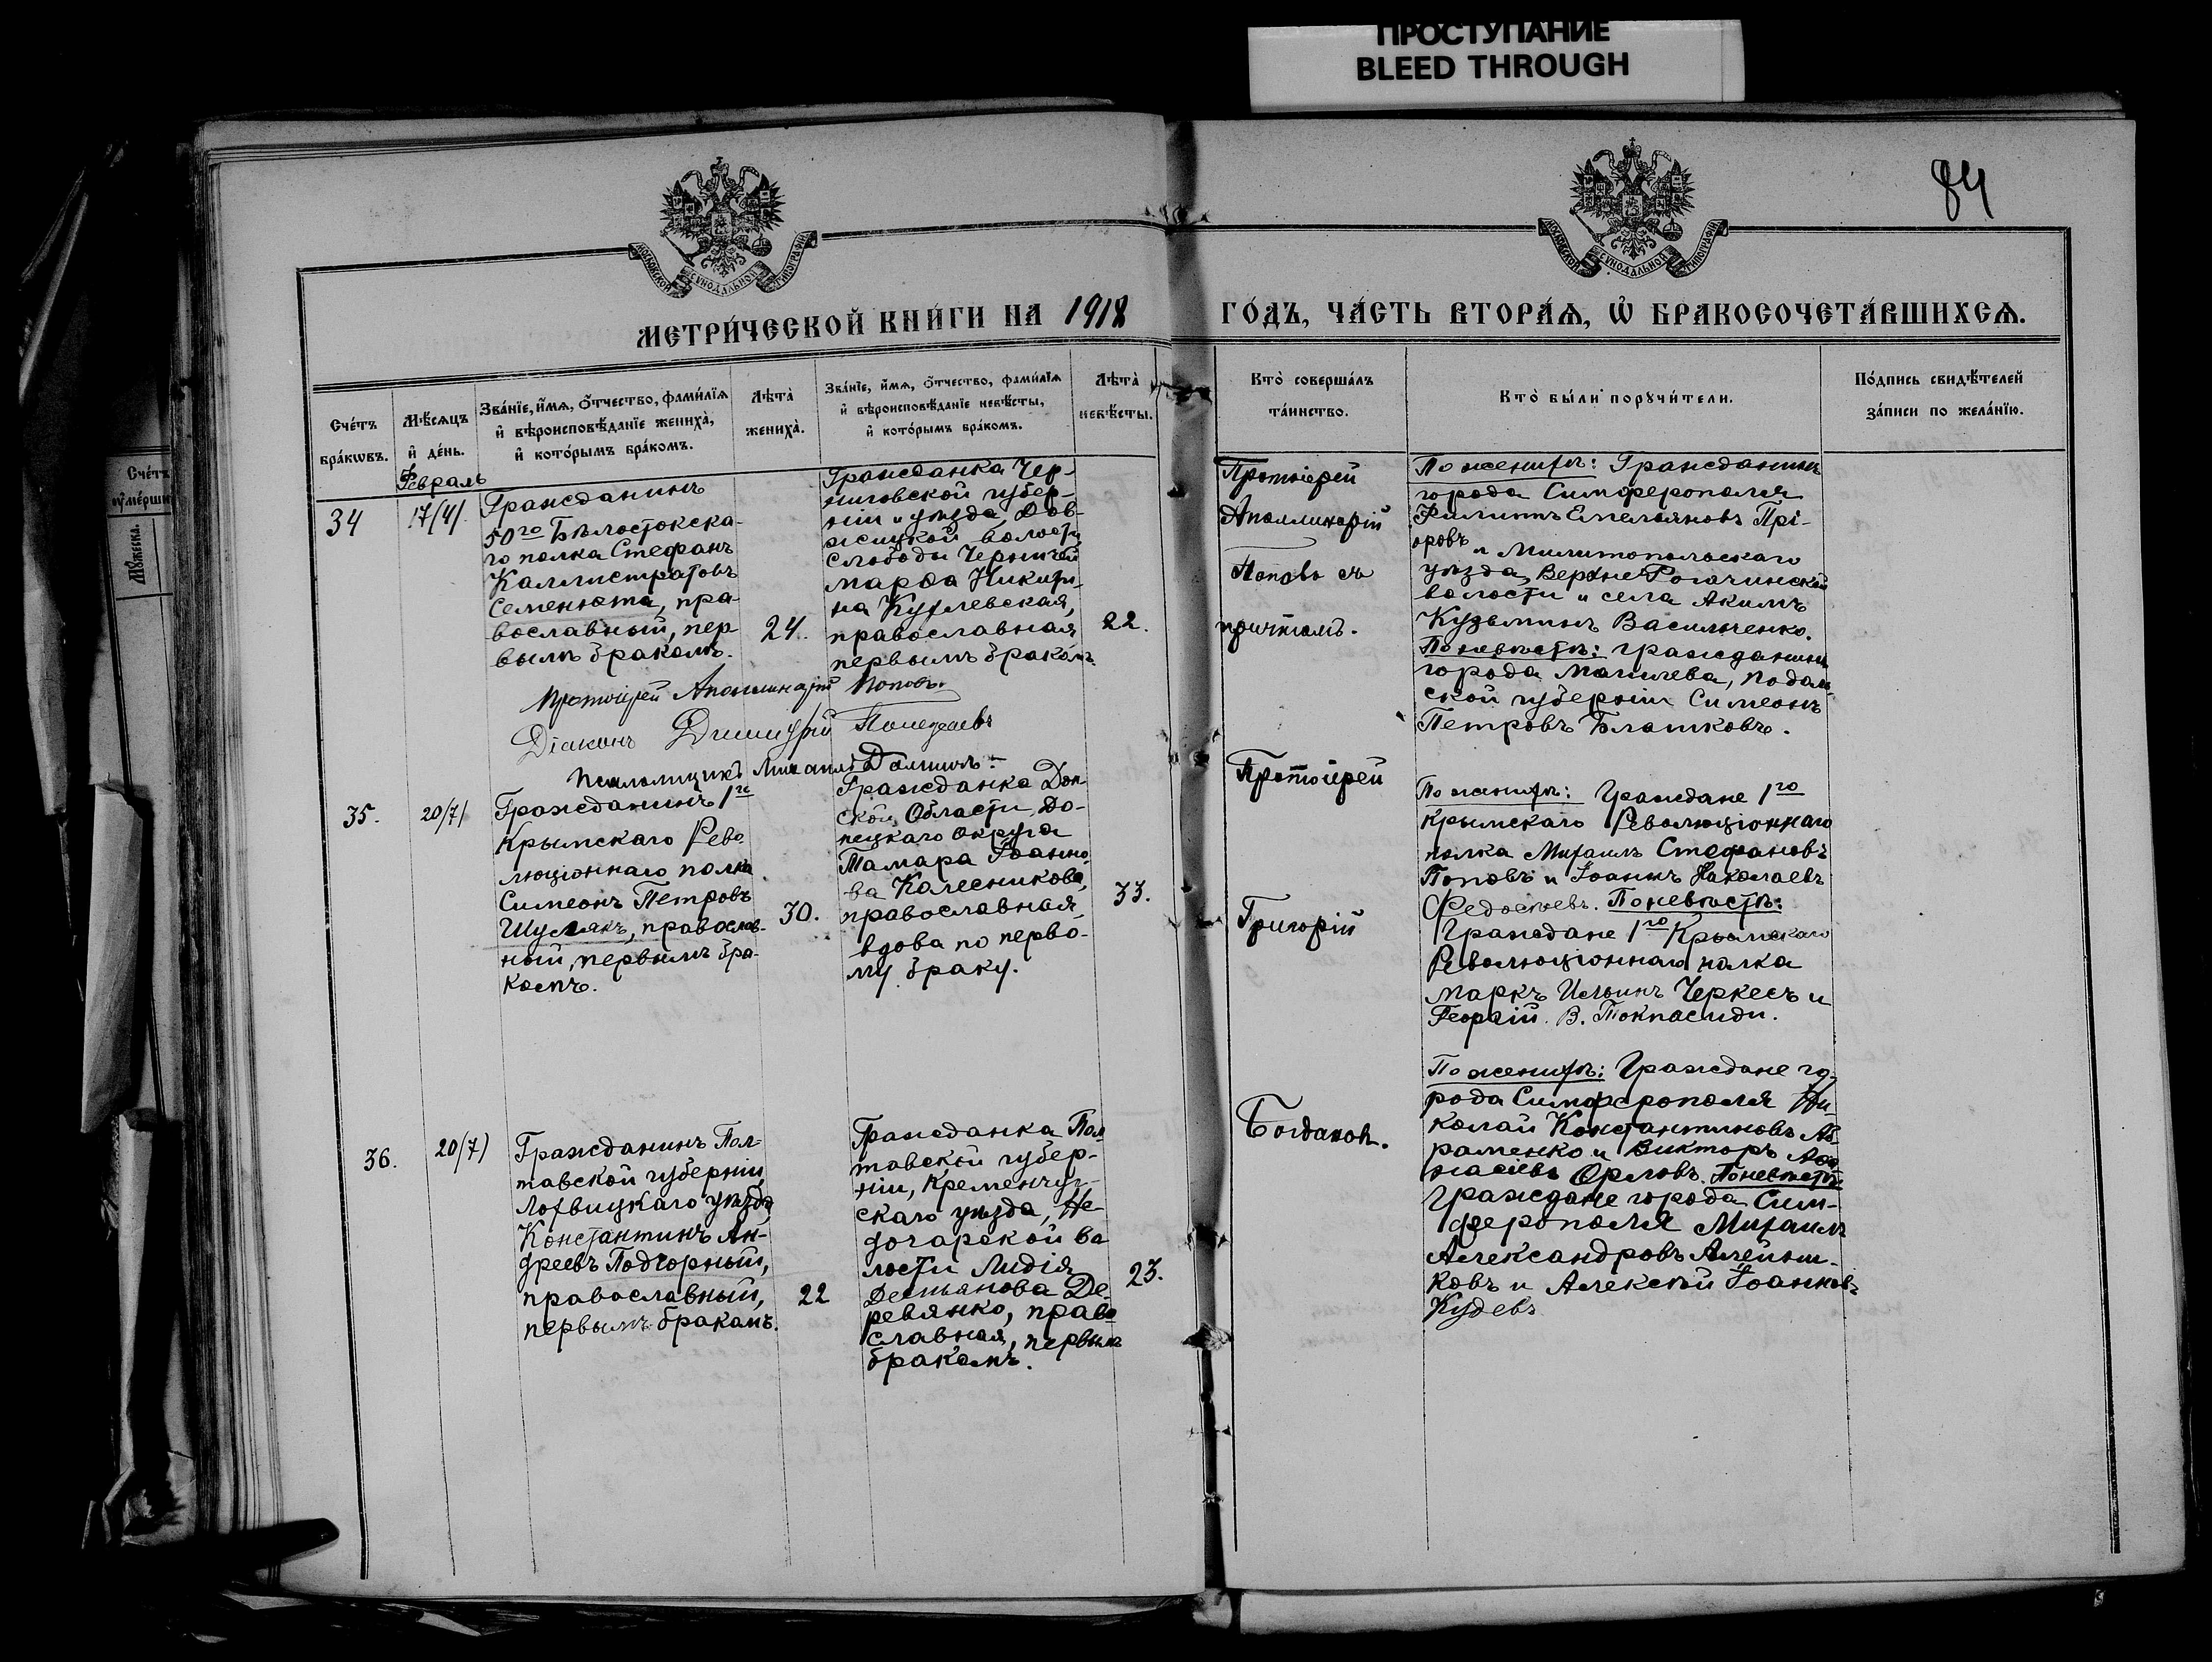 ПРОСТУПАНИЕ
BLEED THROUGH
84
МОСКОВСКОЙ СѴНОДАЛЬНОЙ ТИПОГРАФІИ
МОСКОВСКОЙ СѴНОДАЛЬНОЙ ТИПОГРАФІИ
МЕТРИ́ЧЕСКОЙ КНИ́ГИ НА 1918 ГО́ДЪ, ЧА́СТЬ ВТОРА́Ѧ, Ѡ҆ БРАКОСОЧЕТА́ВШИХСѦ.
Сче́тъ
бра́кѡвъ.
Мѣ́сѧцъ
и҆ де́нь.
Зва́нїе, и҆́мѧ, ѻ҆́тчество, фами́лїѧ
и҆ вѣроисповѣ́данїе жениха̀,
и҆ кото́рымъ бра́комъ.
Лѣта̀
жениха̀.
Зва́нїе, и҆́мѧ, ѻ҆́тчество, фами́лїѧ
и҆ вѣроисповѣ́данїе невѣ́сты,
и҆ кото́рымъ бра́комъ.
Лѣта̀
невѣ́сты.
Кто̀ соверша́лъ
та́инство.
Кто̀ бы́ли порꙋчи́тели.
По́дпись свидѣ́телей
за́писи по жела́нїю.
Февраль
34
17/4/
Гражданинъ
50го Бѣлостокска-
го полка Стефанъ
Каллистратовъ
Семенюта, пра-
вославный, пер-
вымъ бракомъ.
24.
Гражданка Чер-
ниговской губер-
ніи и уѣзда, Дов-
жицкой волости
слободы
Марѳа Никити-
на
православная
первымъ бракомъ
22.
Протоіерей
Аполлинарій
Поповъ съ
причтомъ.
По женихѣ: Гражданинъ
города Симферополя
Филиппъ Емельяновъ Прі-
оровъ и Милитопольскаго
уѣзда, Верхне Рогачинской
волости и села Акимъ
Кузьминъ Васильченко.
По невѣстѣ: гражданинъ
города Могилева, Подоль-
ской губерніи Симеонъ
Петровъ Блашковъ.
Протоіерей Аполлинарій Поповъ.
Діаконъ Димитрій
Псаломщикъ Михаилъ
35.
20/7/
Гражданинъ 1го
Крымскаго Рево-
люціоннаго полка
Симеонъ Петровъ
Шулякъ, православ-
ный, первымъ бра-
комъ.
30.
Гражданка Дон-
ской Области До-
нецкаго округа
Тамара Іоанно-
ва Колесникова,
православная,
вдова по перво-
му браку.
33.
Протоіерей
Григорій
Богданов.
По женихѣ: Граждане 1го
Крымскаго Революціоннаго
полка Михаилъ Стефановъ
Поповъ и Іоаннъ Николаевъ
Федосѣевъ. По невѣстѣ:
Граждане 1го Крымскаго
Революціоннаго полка
Маркъ Ильинъ Черкесъ и
Георгій. В. Токпасиди.
36.
20/7/
Гражданинъ Пол-
тавской губерніи,
Лохвицкаго уѣзда
Константинъ Ан-
дреевъ Подгорный,
православный,
первымъ бракомъ.
22
Гражданка Пол
тавской губер-
ніи, Кременчуг-
скаго уѣзда, Не-
догарской во
лости Лидія
Демьянова Де-
ревянко, право
славная, первымъ
бракомъ.
23.
По женихѣ: Граждане го-
рода Симферополя Ни-
колай Константиновъ Аб-
раменко и Викторъ Аѳа
насіевъ Орловъ. По невѣстѣ:
Граждане города Сим-
ферополя Михаилъ
Александровъ Алейни-
ковъ и Алексѣй Іоанновъ
Кудевъ
Сче́тъ